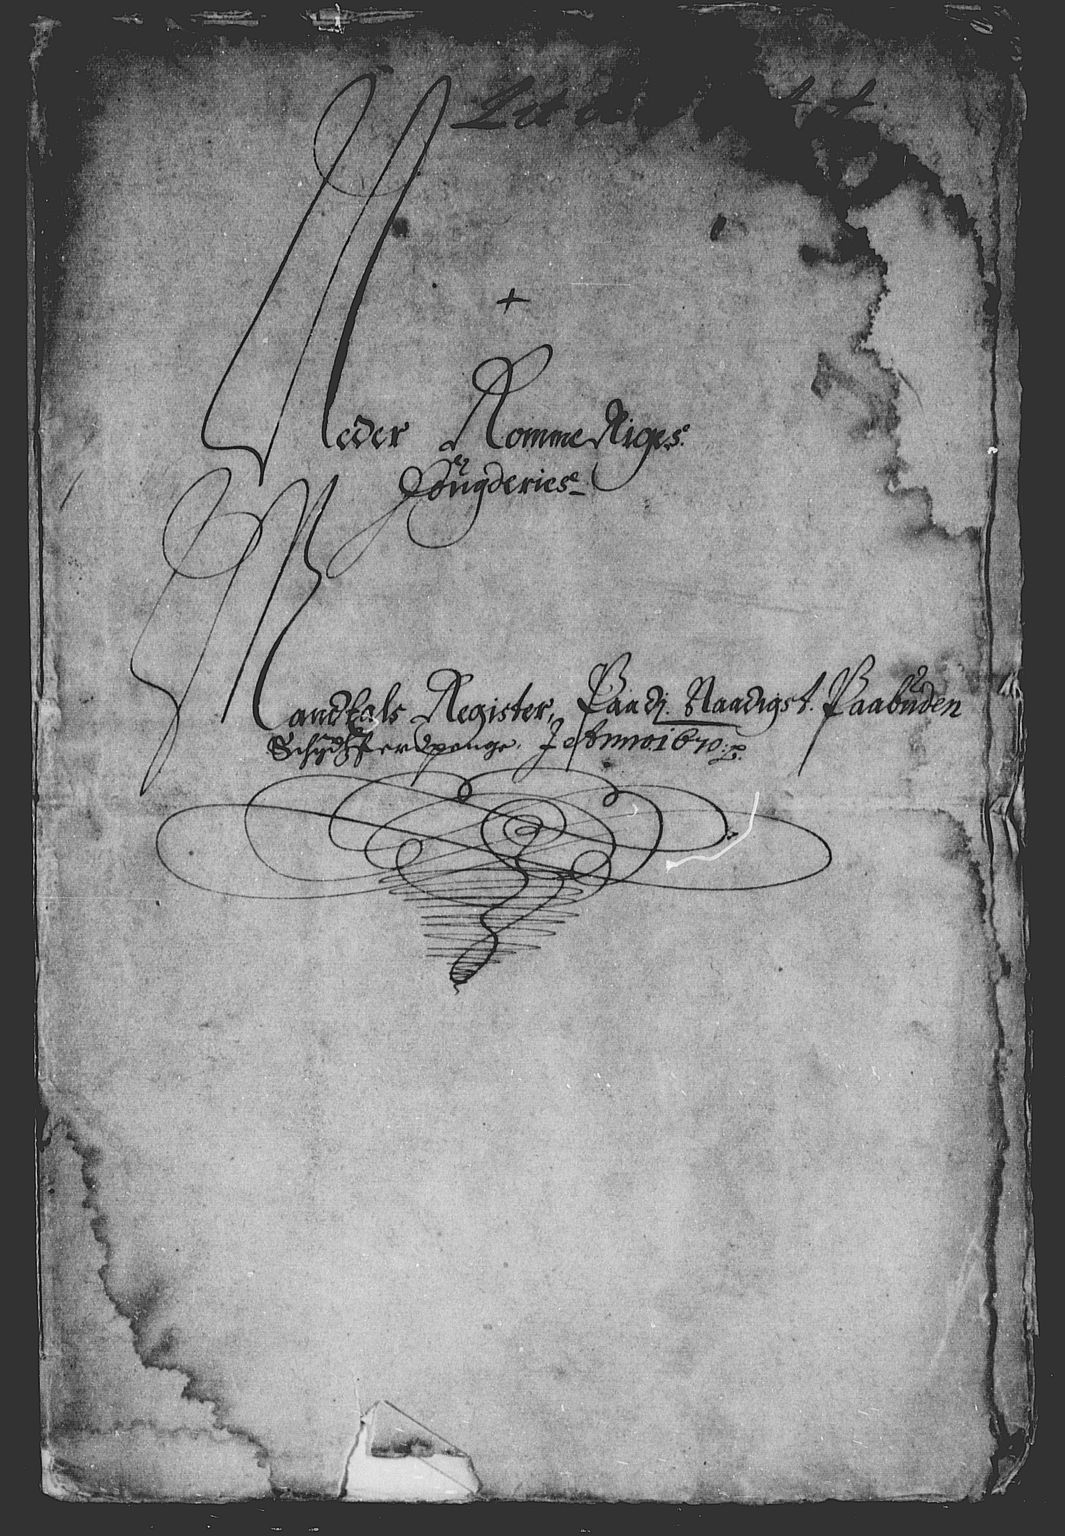 Neder Romme Riges
Fougderies
Mandtals Register, Paa di Naadigst Paabuden
Schydtzferdpenge. Anno 1670